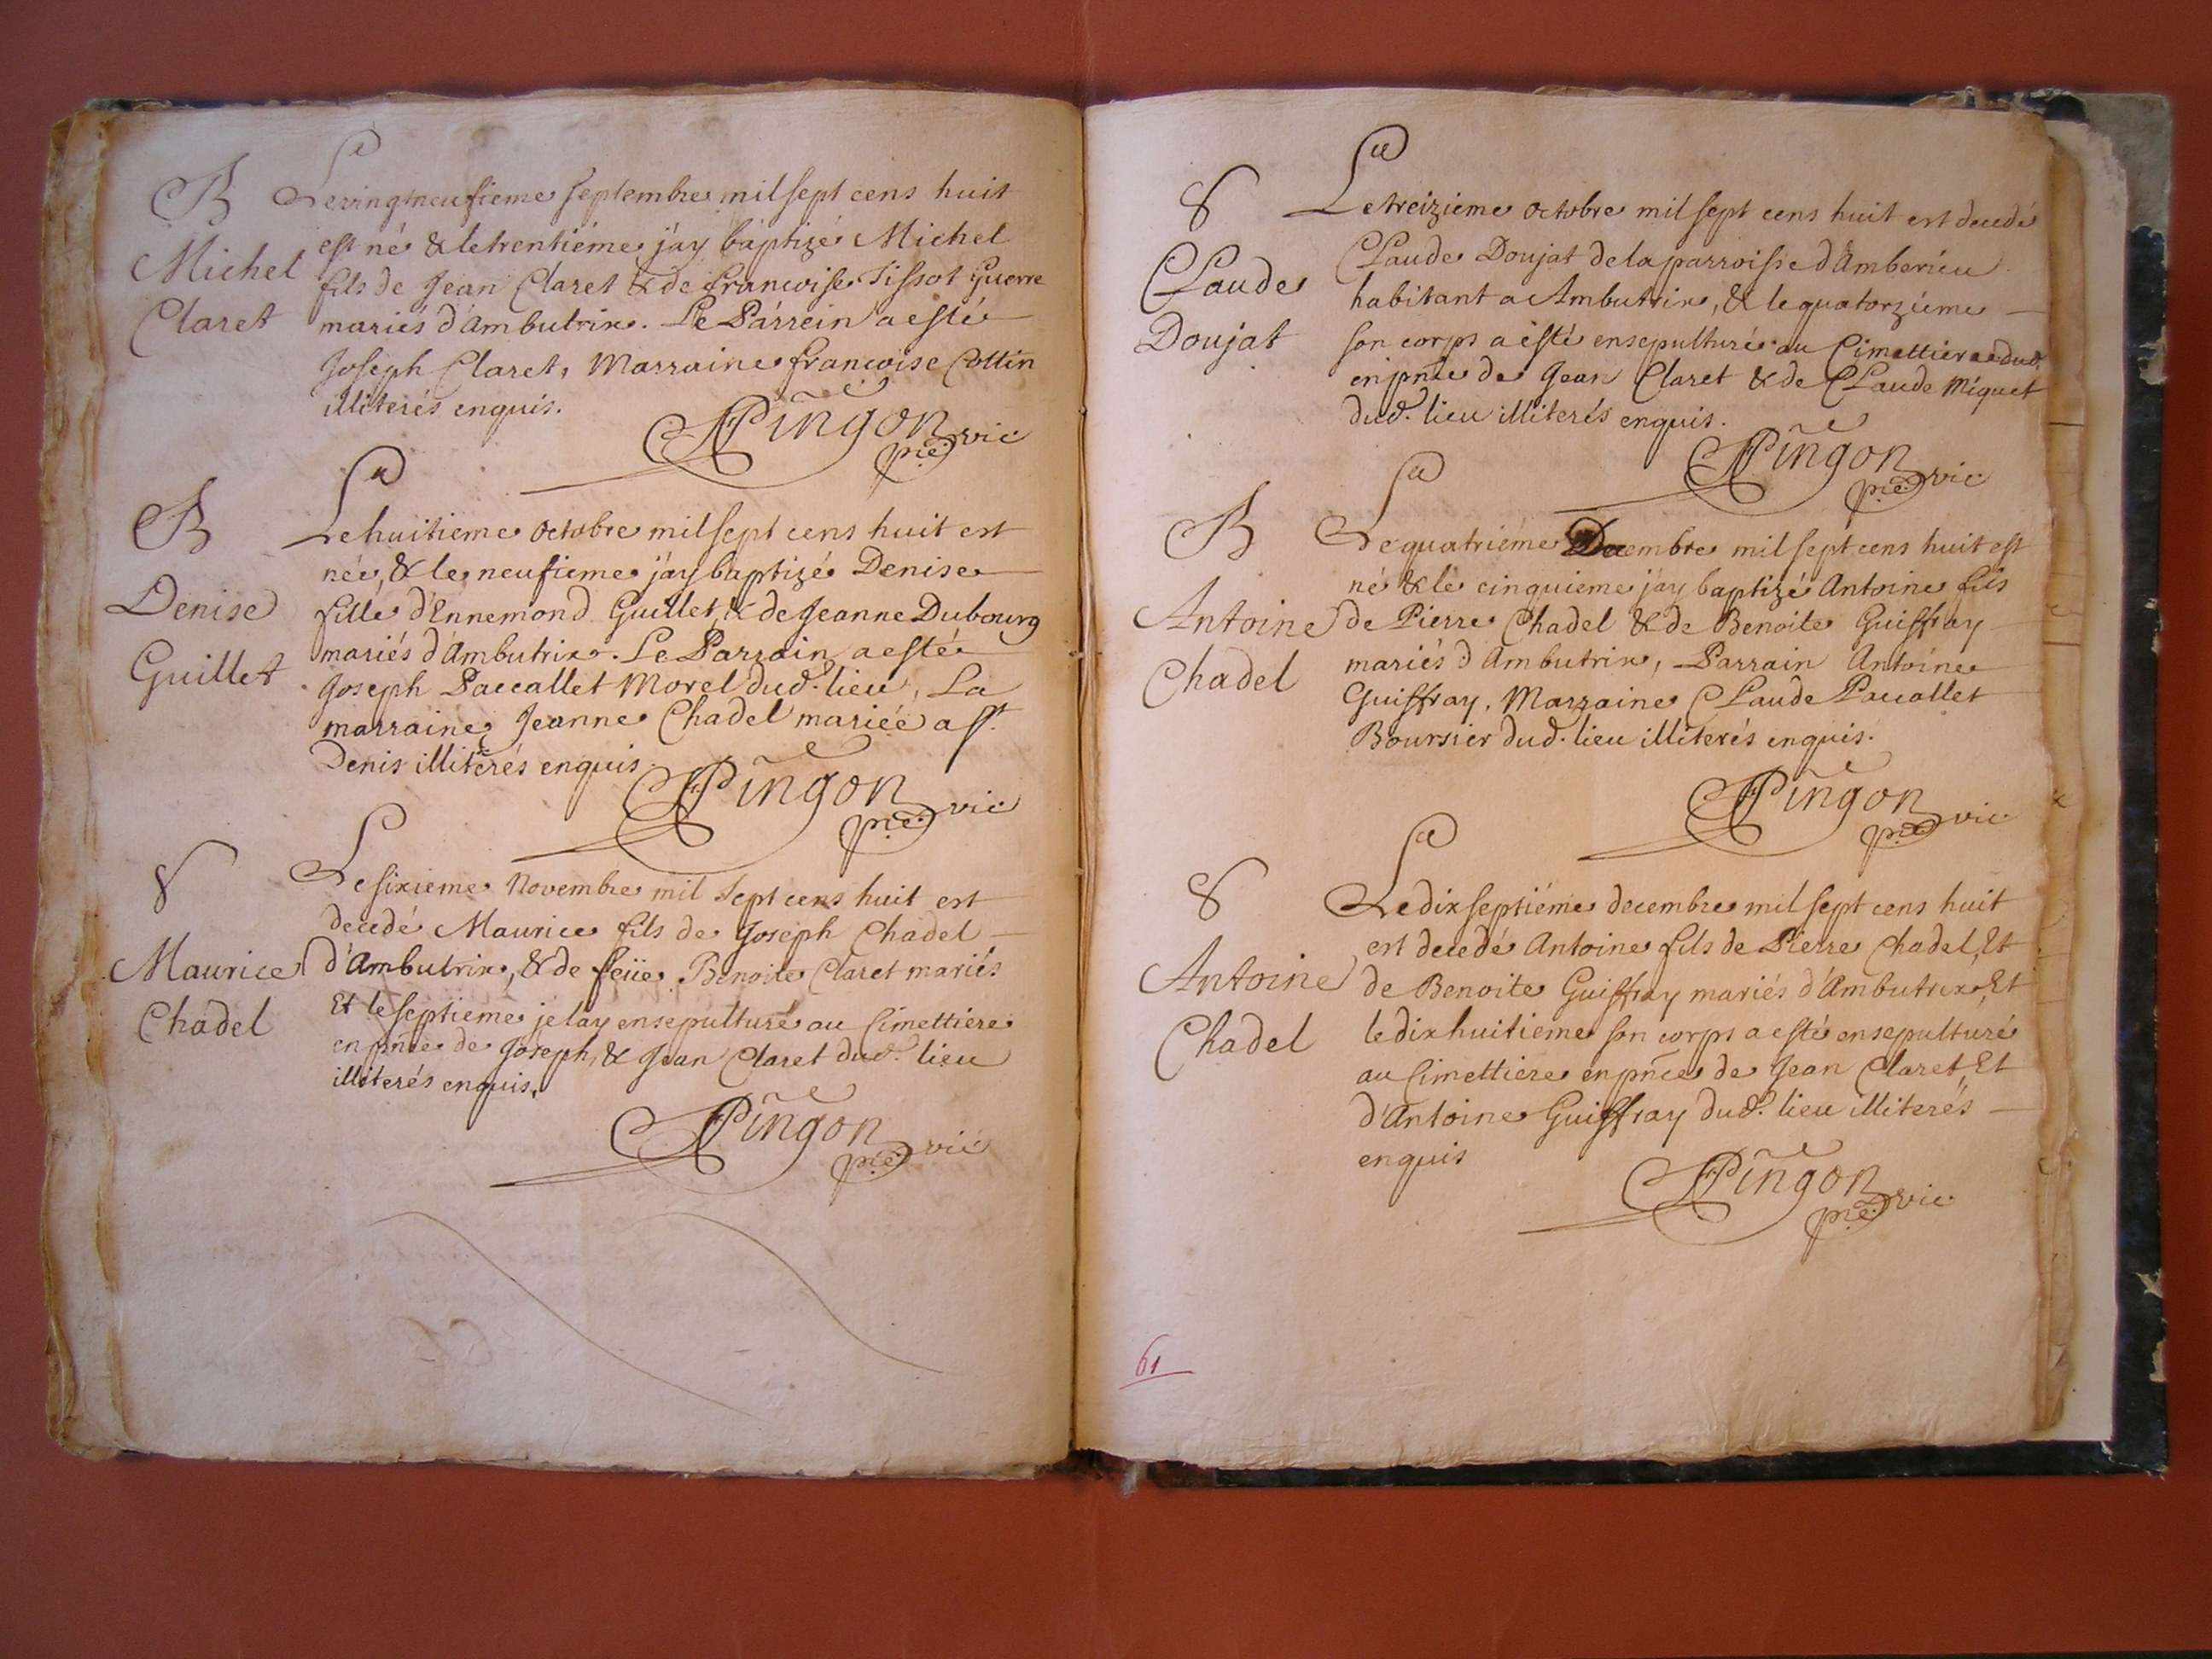 B
Michel
Claret
Le vingtneufieme septembre mil sept cens huit
est né & le trentiéme j'ay baptizé Michel
fils de Jean Claret & de francoise Tissot Guerre
mariés d'Ambutrix. Le Parrein a esté
Joseph Claret, Marraine francoise Cottin
illiterés enquis.
Pingon
pre vic
B
Denise
Guillet
Le huitieme octobre mil sept cens huit est
née, & le neufieme j'ay baptizé Denise
fille d'Ennemond Guillet, & de Jeanne Dubourg
mariés d'Ambutrix. Le Parrain a esté
Joseph Paccallet Morel dud. lieu, La
marraine Jeanne Chadel mariée a st.
Denis illiterés enquis.
Pingon
pre vic
S
Maurice
Chadel
Le sixieme Novembre mil sept cens huit est
decedé Maurice fils de Joseph Chadel
d'Ambutrix, & de feüe Benoite Claret mariés
Et le septieme je lay ensepulturé au Cimettiere
en pñce de Joseph, & Jean Claret dud. lieu
illiterés enquis.
Pingon
pre vic
S
Claude
Doujat
Le treizieme octobre mil sept cens huit est decedé
Claude Doujat de la parroisse d'Amberieu
habitant a Ambutrix, & le quatorzieme
son corps a esté ensepulturé au Cimettiere dud.
en pñce de Jean Claret & de Claude Miguet
dud. lieu illiterés enquis.
Pingon
pre vic
B
Antoine
Chadel
Le quatriéme Decembre mil sept cens huit est
né & le cinquieme j'ay baptizé Antoine fils
de Pierre Chadel & de Benoite Guiffray
mariés d'Ambutrix, Parrain Antoine
Guiffray, Marraine Claude Paccallet
Boursier dud. lieu illiterés enquis.
Pingon
pre vic
S
Antoine
Chadel
Le dix septiéme decembre mil sept cens huit
est decedé Antoine fils de Pierre Chadel, Et
de Benoite Guiffray mariés d'Ambutrix, Et
le dix huitieme son corps a esté ensepulturé
au Cimettiere en pñce de Jean Claret, Et
d'Antoine Guiffray dud. lieu illiterés
enquis
Pingon
pre vic
61